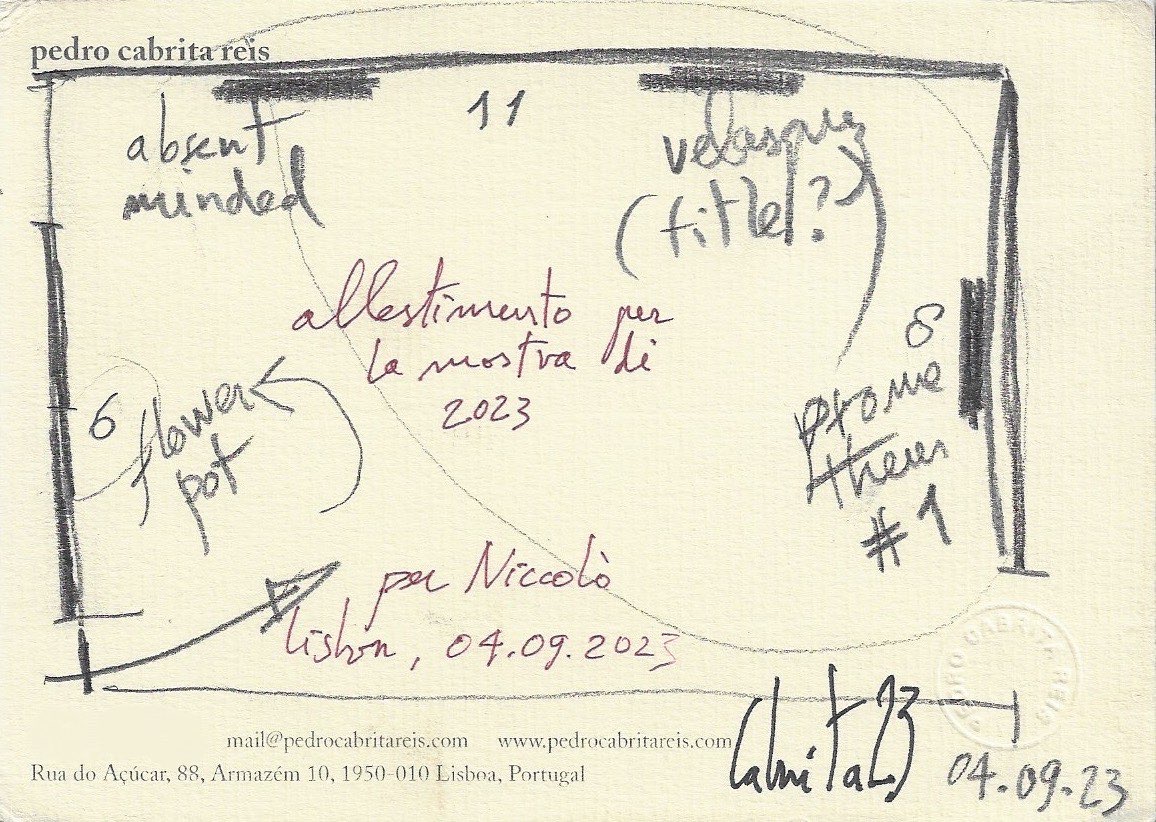 pedro cabrita reis
absent
minded
11
velasquez
(title?)
allestimento per
la mostra di
2023
6
flower
pot
8
Ptome
theus
#1
per Niccolò
lisbon, 04.09.2023
PEDRO CABRITA REIS
Cabrita 23
04.09.23
mail@pedrocabritareis.com www.pedrocabritareis.com
Rua do Açúcar, 88, Armazém 10, 1950-010 Lisboa, Portugal